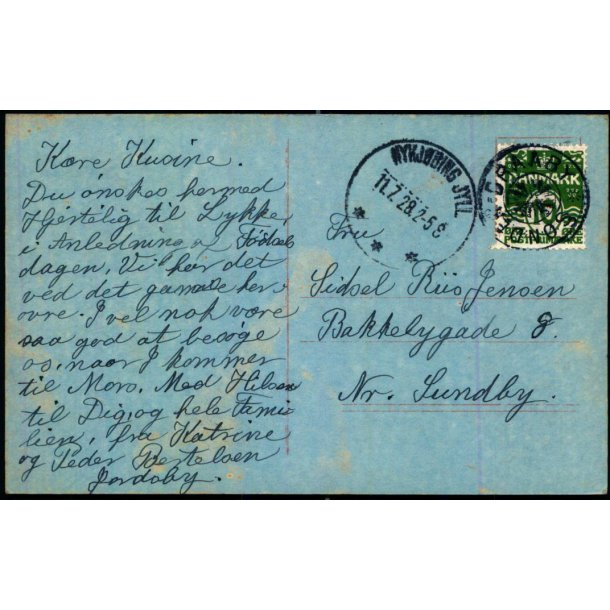 Kære Kusine.
Du ønskes hermed
Hjertelig til Lykke
i Anledning af Födsels
dagen. Vi har det
ved det gamle her-
ovre. I vel nok være
saa god at besøge
os, naar I kommer
til Mors. Med Hilsen
til Dig og hele Fami-
lien, fra Katrine
og Peder Bertelsen
NYKJØBING JYLL.
11.7.28.2-5 E
DANMARK
Fru
Sidsel Riis Jensen
Bakkebygade 8.
Nr. Sundby.